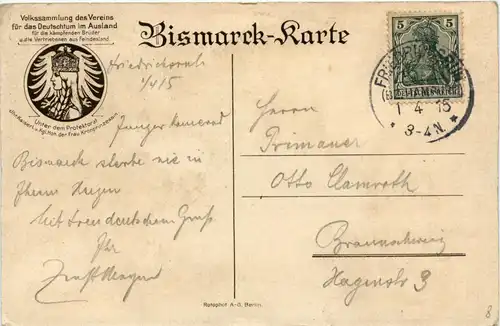 Volkssammlung des Vereins
für das Deutschtum im Ausland
für die kämpfenden Brüder
u. die Vertriebenen aus Feindesland
Unter dem Protektorat
Bismarck-Karte
5 5
1 4 15
* 3-4 N. *
Friedrichsruh
1/4/15
Junger Kamerad
Bismarck sterbe nie in
Ihrem Herzen
Mit treudeutschem Gruß
Ihr
Herrn
Primaner
Otto Clamroth
Braunschweig
Hagenstr 3
Rotophot A.-G. Berlin.
8